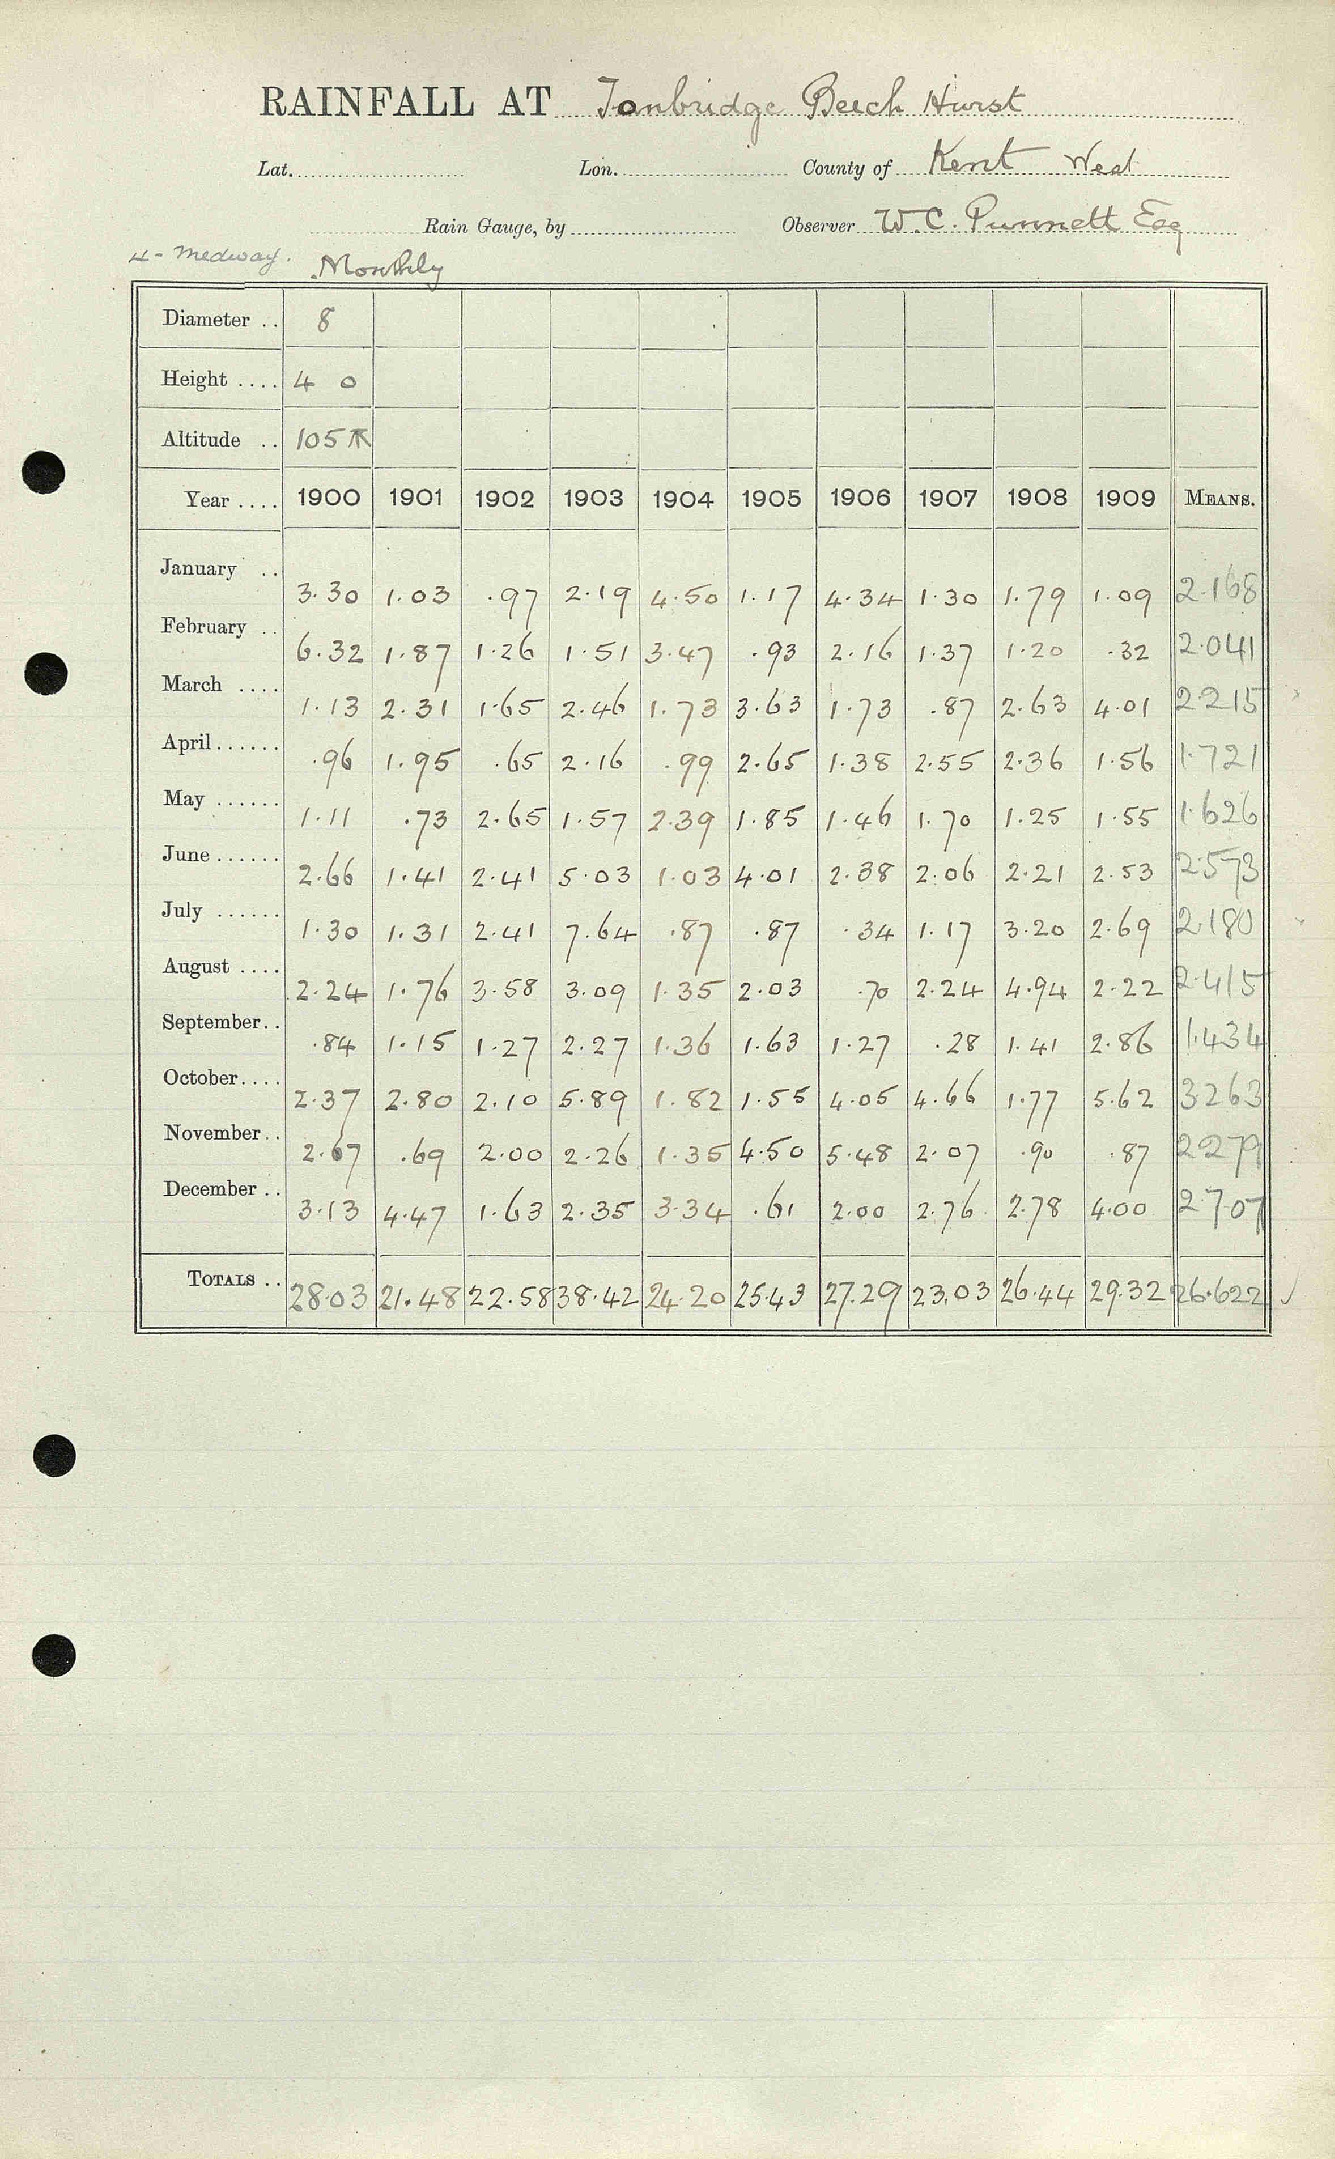 RAINFALL AT Tonbridge Beech Hurst
Lat. Lon. County of Kent West
Rain Gauge, by Observer W. C. Punnett Esq
4 - Medway. Monthly
Diameter .. 8
Height .... 4 0
Altitude .. 105 ft
Year .... 1900 1901 1902 1903 1904 1905 1906 1907 1908 1909 MEANS.
January .. 3.30 1.03 .97 2.19 4.50 1.17 4.34 1.30 1.79 1.09 2.168
February .. 6.32 1.87 1.26 1.51 3.47 .93 2.16 1.37 1.20 .32 2.041
March .... 1.13 2.31 1.65 2.46 1.73 3.63 1.73 .87 2.63 4.01 2215
April...... .96 1.95 .65 2.16 .99 2.65 1.38 2.55 2.36 1.56 1.721
May ...... 1.11 .73 2.65 1.57 2.39 1.85 1.46 1.70 1.25 1.55 1.626
June...... 2.66 1.41 2.41 5.03 1.03 4.01 2.38 2.06 2.21 2.53 2.573
July ...... 1.30 1.31 2.41 7.64 .87 .87 .34 1.17 3.20 2.69 2.180
August .... 2.24 1.76 3.58 3.09 1.35 2.03 .70 2.24 4.94 2.22 2.415
September.. .84 1.15 1.27 2.27 1.36 1.63 1.27 .28 1.41 2.86 1.434
October.... 2.37 2.80 2.10 5.89 1.82 1.55 4.05 4.66 1.77 5.62 3263
November.. 2.67 .69 2.00 2.26 1.35 4.50 5.48 2.07 .90 .87 2279
December .. 3.13 4.47 1.63 2.35 3.34 .61 2.00 2.76 2.78 4.00 2.707
TOTALS .. 28.03 21.48 22.58 38.42 24.20 25.43 27.29 23.03 26.44 29.32 26.622